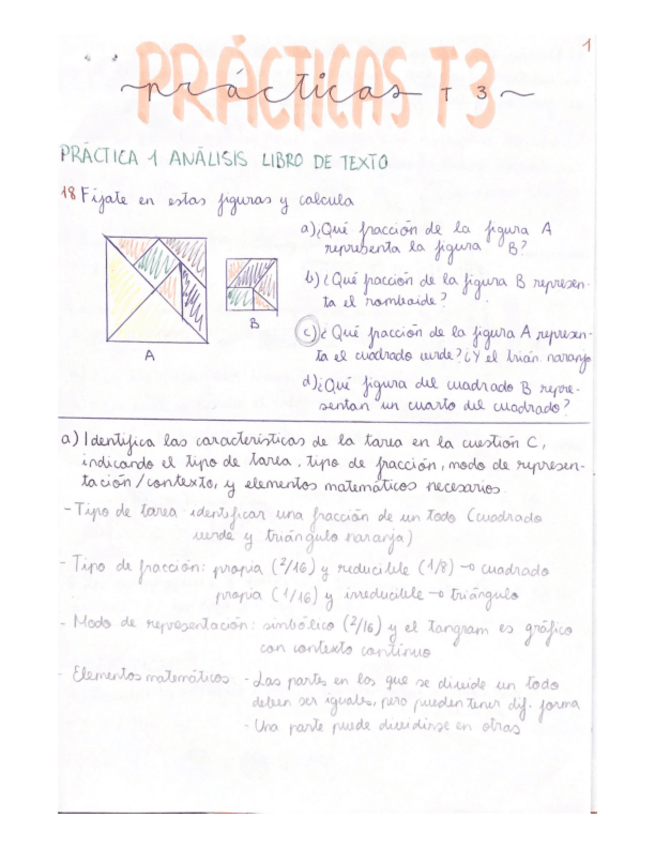 1
PRÁCTICAS T3
prácticas T 3
PRÁCTICA 1 ANÁLISIS LIBRO DE TEXTO
18 Fíjate en estas figuras y calcula
a)¿Qué fracción de la figura A
representa la figura B?
b) ¿Qué fracción de la figura B represen-
ta el romboide?
c) ¿Qué fracción de la figura A represen-
ta el cuadrado verde? ¿Y el trián. naranja
d)¿Qué figura del cuadrado B repre-
sentan un cuarto del cuadrado?
A
B
a) Identifica las características de la tarea en la cuestión C,
indicando el tipo de tarea, tipo de fracción, modo de represen-
tación/contexto, y elementos matemáticos necesarios.
- Tipo de tarea: identificar una fracción de un todo (cuadrado
verde y triángulo naranja)
- Tipo de fracción: propia (2/16) y reducible (1/8) → cuadrado
propia (1/16) y irreducible → triángulo
- Modo de representación: simbólico (2/16) y el tangram es gráfico
con contexto continuo
- Elementos matemáticos - Las partes en los que se divide un todo
deben ser iguales, pero pueden tener dif. forma
- Una parte puede dividirse en otras